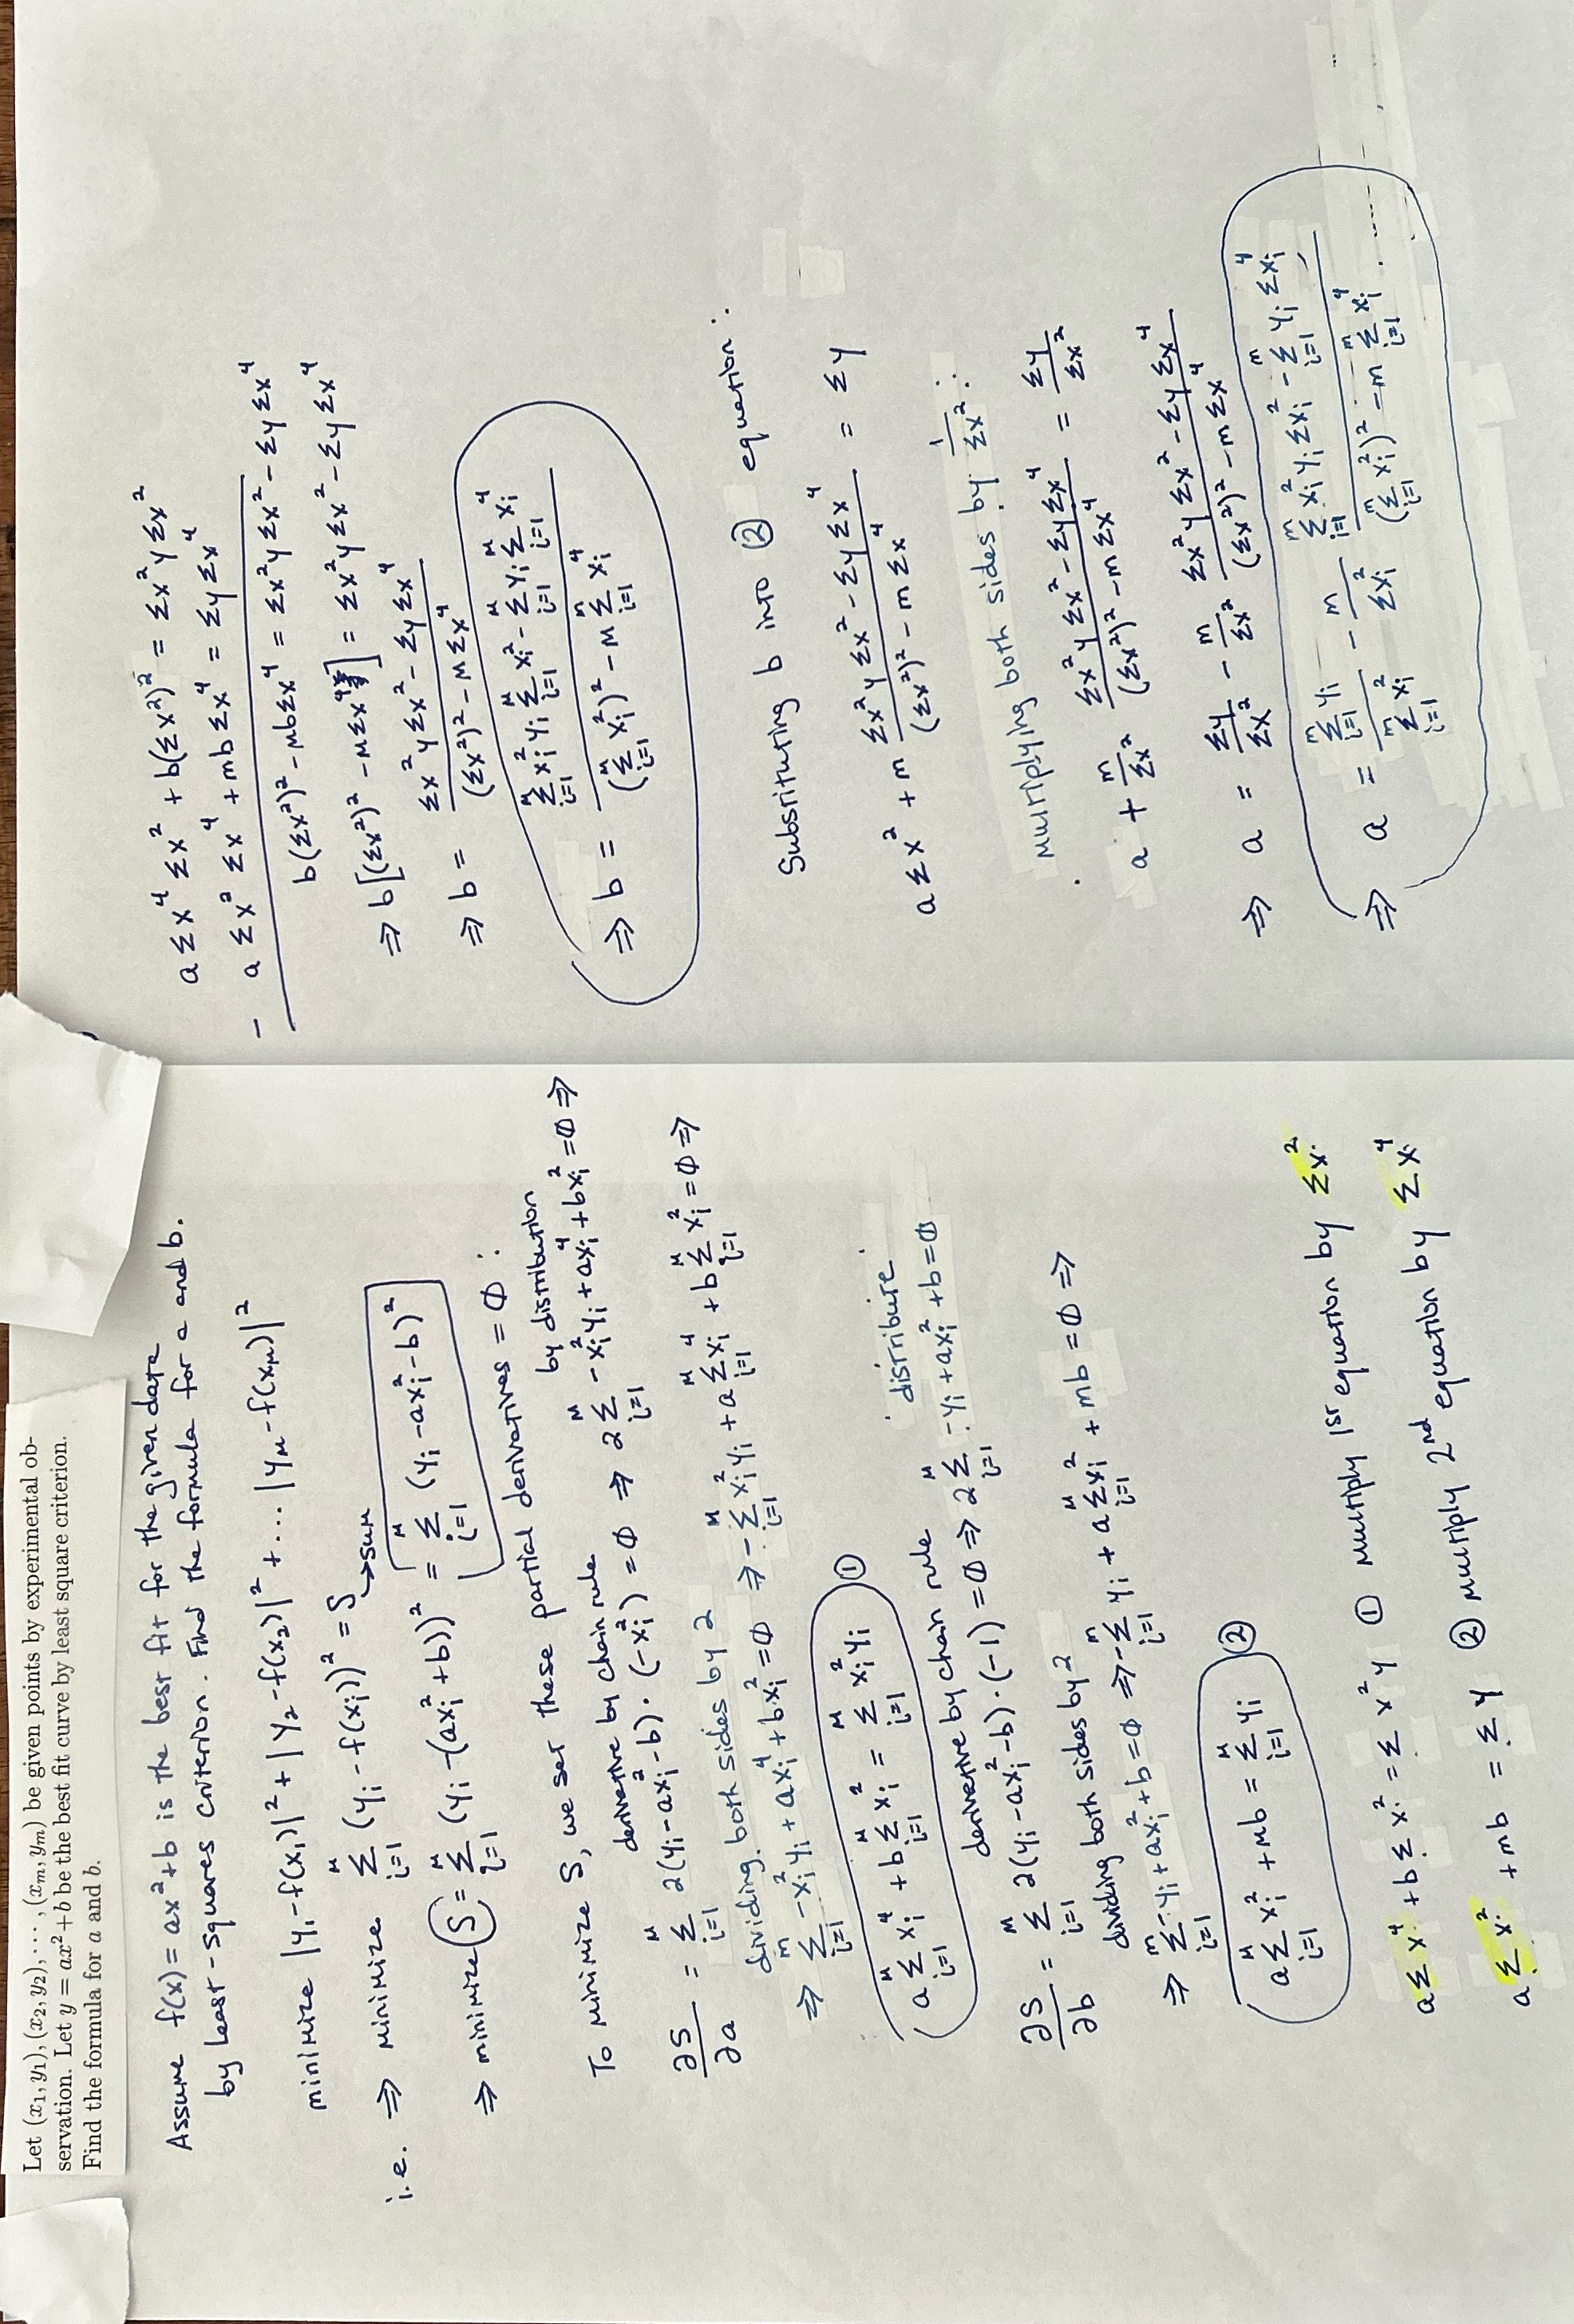 Let (x₁, y₁), (x₂, y₂), ⋯ , (xₘ, yₘ) be given points by experimental ob-
servation. Let y = ax² + b be the best fit curve by least square criterion.
Find the formula for a and b.
Assume f(x) = ax²+b is the best fit for the given data
by least-squares criterion. Find the formula for a and b.
minimize |y₁-f(x₁)|² + |y₂-f(x₂)|² + ... |yₘ-f(xₘ)|²
i.e. ⇒ minimize Σᵢ₌₁ᵐ (yᵢ - f(xᵢ))² = S → sum
⇒ minimize S = Σᵢ₌₁ᵐ (yᵢ - (axᵢ²+b))² = Σᵢ₌₁ᵐ (yᵢ - axᵢ² - b)²
To minimize S, we set these partial derivatives = 0 :
derivative by chain rule by distribution
∂S/∂a = Σᵢ₌₁ᵐ 2(yᵢ - axᵢ² - b)·(-xᵢ²) = 0 ⇒ 2 Σᵢ₌₁ᵐ -xᵢ²yᵢ + axᵢ⁴ + bxᵢ² = 0 ⇒
dividing both sides by 2
⇒ Σᵢ₌₁ᵐ -xᵢ²yᵢ + axᵢ⁴ + bxᵢ² = 0 ⇒ -Σᵢ₌₁ᵐ xᵢ²yᵢ + a Σᵢ₌₁ᵐ xᵢ⁴ + b Σᵢ₌₁ᵐ xᵢ² = 0 ⇒
a Σᵢ₌₁ᵐ xᵢ⁴ + b Σᵢ₌₁ᵐ xᵢ² = Σᵢ₌₁ᵐ xᵢ²yᵢ ①
derivative by chain rule distribute
∂S/∂b = Σᵢ₌₁ᵐ 2(yᵢ - axᵢ² - b)·(-1) = 0 ⇒ 2 Σᵢ₌₁ᵐ -yᵢ + axᵢ² + b = 0
dividing both sides by 2
⇒ Σᵢ₌₁ᵐ -yᵢ + axᵢ² + b = 0 ⇒ -Σᵢ₌₁ᵐ yᵢ + a Σᵢ₌₁ᵐ xᵢ² + mb = 0 ⇒
a Σᵢ₌₁ᵐ xᵢ² + mb = Σᵢ₌₁ᵐ yᵢ ②
aΣx⁴ + bΣx² = Σx²y ① multiply 1st equation by Σx²
aΣx² + mb = Σy ② multiply 2nd equation by Σx⁴
aΣx⁴Σx² + b(Σx²)² = Σx²yΣx²
- aΣx²Σx⁴ + mbΣx⁴ = ΣyΣx⁴
b(Σx²)² - mbΣx⁴ = Σx²yΣx² - ΣyΣx⁴
⇒ b[(Σx²)² - mΣx⁴] = Σx²yΣx² - ΣyΣx⁴
⇒ b = (Σx²yΣx² - ΣyΣx⁴) / ((Σx²)² - mΣx⁴)
⇒ b = (Σᵢ₌₁ᵐ xᵢ²yᵢ Σᵢ₌₁ᵐ xᵢ² - Σᵢ₌₁ᵐ yᵢ Σᵢ₌₁ᵐ xᵢ⁴) / ((Σᵢ₌₁ᵐ xᵢ²)² - m Σᵢ₌₁ᵐ xᵢ⁴)
Substituting b into ② equation :
aΣx² + m (Σx²yΣx² - ΣyΣx⁴) / ((Σx²)² - mΣx⁴) = Σy
Multiplying both sides by 1/Σx² :
a + m/Σx² (Σx²yΣx² - ΣyΣx⁴) / ((Σx²)² - mΣx⁴) = Σy/Σx²
⇒ a = Σy/Σx² - m/Σx² (Σx²yΣx² - ΣyΣx⁴) / ((Σx²)² - mΣx⁴)
⇒ a = Σᵢ₌₁ᵐ yᵢ / Σᵢ₌₁ᵐ xᵢ² - m/Σxᵢ² (Σᵢ₌₁ᵐ xᵢ²yᵢ Σxᵢ² - Σᵢ₌₁ᵐ yᵢ Σxᵢ⁴) / ((Σᵢ₌₁ᵐ xᵢ²)² - m Σᵢ₌₁ᵐ xᵢ⁴)